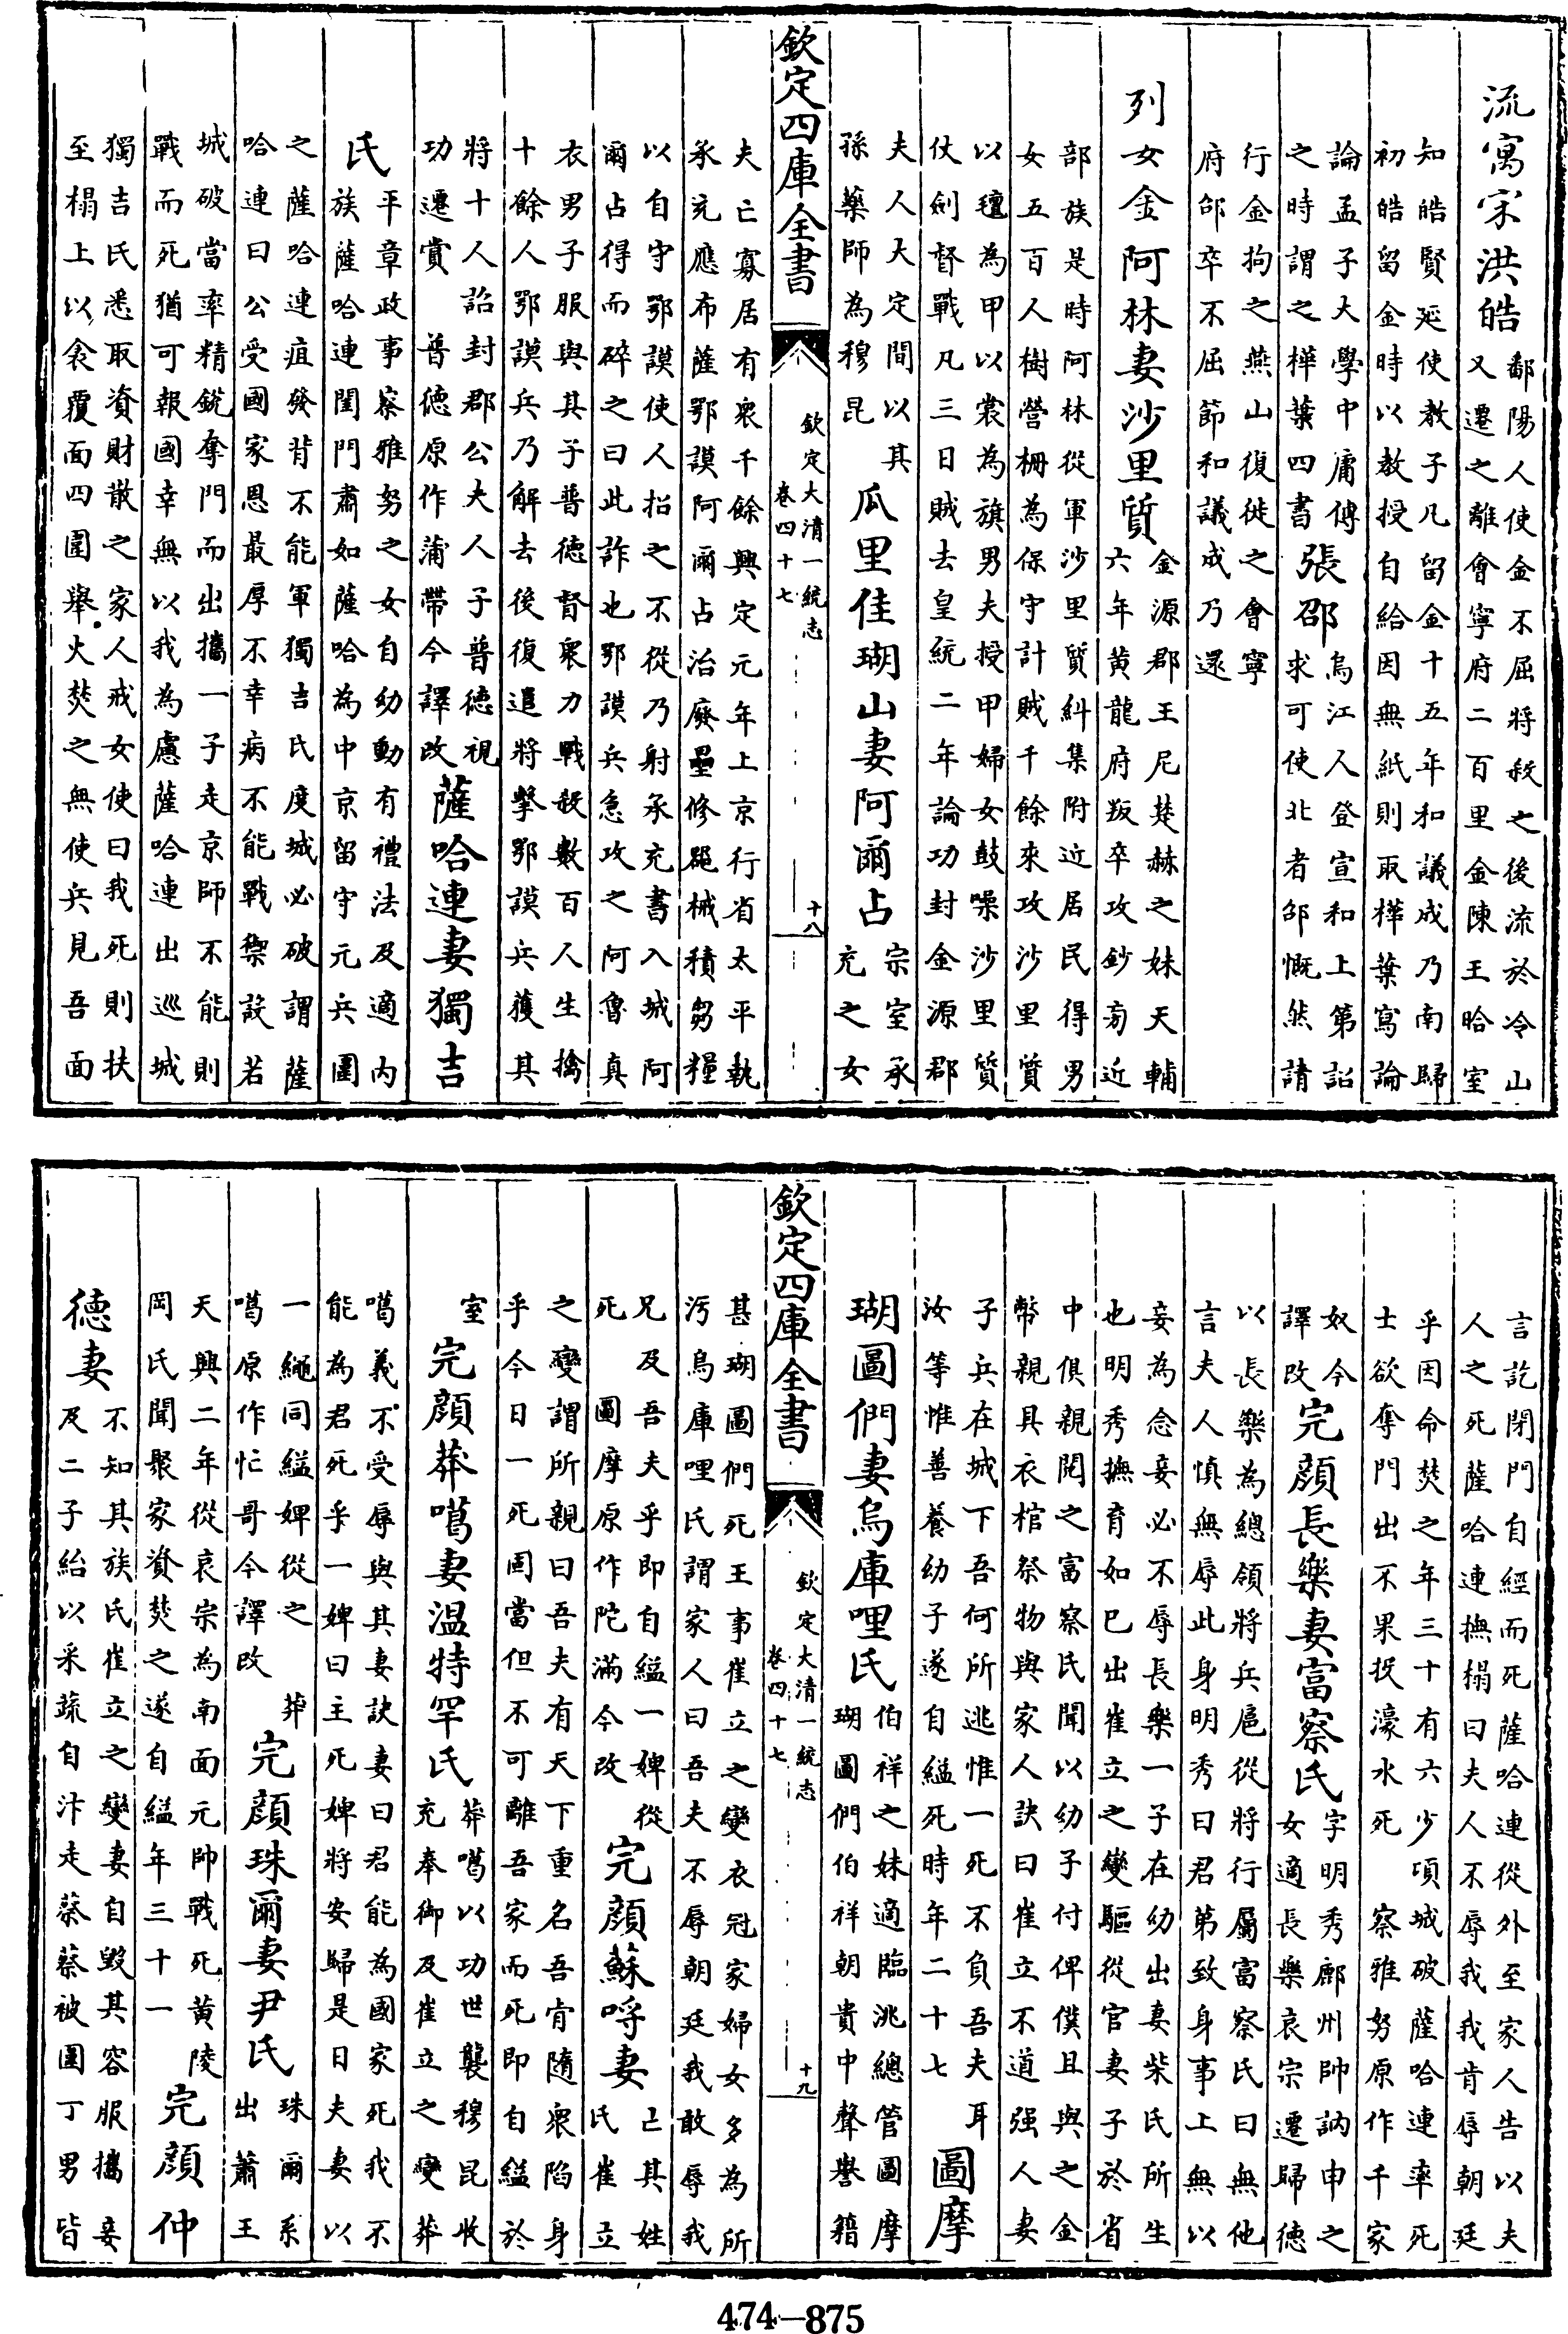 流寓宋洪皓
鄱陽人使金不屈將殺之後流於冷山
又遷之離會寧府二百里金陳王哈室
知皓賢延使教子凡留金十五年和議成乃南歸
初皓留金時以教授自給因無紙則取樺葉寫論
論孟子大學中庸傳
之時謂之樺葉四書
張邵
烏江人登宣和上第詔
求可使北者邵慨然請
行金拘之燕山復徙之會寧
府邵卒不屈節和議成乃還
列女金阿林妻沙里質
金源郡王尼楚赫之妹天輔
六年黄龍府叛卒攻鈔旁近
部族是時阿林從軍沙里質糾集附近居民得男
女五百人樹營柵為保守計賊千餘來攻沙里質
以氊為甲以裳為旗男夫授甲婦女鼓噪沙里質
仗劍督戰凡三日賊去皇統二年論功封金源郡
夫人大定間以其
孫藥師為穆昆
瓜里佳瑚山妻阿爾占
宗室承
充之女
欽定四庫全書
欽定大清一統志
卷四十七
十八
夫亡寡居有衆千餘興定元年上京行省太平執
承充應布薩鄂謨阿爾占治廢壘修器械積芻糧
以自守鄂謨使人招之不從乃射承充書入城阿
爾占得而碎之曰此詐也鄂謨兵急攻之阿魯真
衣男子服與其子普德督衆力戰殺數百人生擒
十餘人鄂謨兵乃解去後復遣將擊鄂謨兵獲其
將十人詔封郡公夫人子普德視
功遷賞 普德原作蒲帶今譯改
薩哈連妻獨吉
氏
平章政事察雅努之女自幼動有禮法及適内
族薩哈連閨門肅如薩哈為中京留守元兵圍
之薩哈連疽發背不能軍獨吉氏度城必破謂薩
哈連曰公受國家恩最厚不幸病不能戰禦設若
城破當率精銳奪門而出攜一子走京師不能則
戰而死猶可報國幸無以我為慮薩哈連出巡城
獨吉氏悉取資財散之家人戒女使曰我死則扶
至榻上以衾覆面四圍舉火焚之無使兵見吾面
言訖閉門自經而死薩哈連從外至家人告以夫
人之死薩哈連撫榻曰夫人不辱我我肯辱朝廷
乎因命焚之年三十有六少頃城破薩哈連率死
士欲奪門出不果投濠水死 察雅努原作千家
奴今
譯改
完顔長樂妻富察氏
字明秀鄜州帥訥申之
女適長樂哀宗遷歸德
以長樂為總領將兵扈從將行屬富察氏曰無他
言夫人慎無辱此身明秀曰君第致身事上無以
妾為念妾必不辱長樂一子在幼出妻柴氏所生
也明秀撫育如已出崔立之變驅從官妻子於省
中俱親閱之富察氏聞以幼子付俾僕且與之金
幣親具衣棺祭物與家人訣曰崔立不道强人妻
子兵在城下吾何所逃惟一死不負吾夫耳
汝等惟善養幼子遂自縊死時年二十七
圖摩
瑚圖們妻烏庫哩氏
伯祥之妹適臨洮總管圖摩
瑚圖們伯祥朝貴中聲譽籍
欽定四庫全書
欽定大清一統志
卷四十七
十九
甚瑚圖們死王事崔立之變衣冠家婦女多為所
汚烏庫哩氏謂家人曰吾夫不辱朝廷我敢辱我
兄及吾夫乎即自縊一婢從
死 圖摩原作陀滿今改
完顔蘇哷妻
亡其姓
氏崔立
之變謂所親曰吾夫有天下重名吾肯隨衆陷身
乎今日一死固當但不可離吾家而死即自縊於
室
完顔莽噶妻温特罕氏
莽噶以功世襲穆昆收
充奉御及崔立之變莽
噶義不受辱與其妻訣妻曰君能為國家死我不
能為君死乎一婢曰主死婢將安歸是日夫妻以
一繩同縊婢從之 莽
噶原作忙哥今譯改
完顔珠爾妻尹氏
珠爾系
出蕭王
天興二年從哀宗為南面元帥戰死黄陵
岡氏聞聚家資焚之遂自縊年三十一
完顔仲
德妻
不知其族氏崔立之變妻自毀其容服攜妾
及二子紿以采蔬自汴走蔡蔡被圍丁男皆
474—875